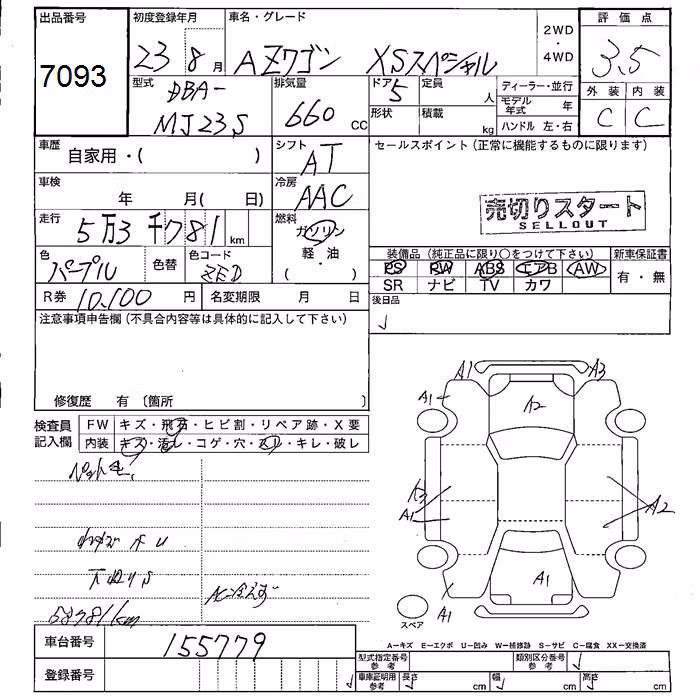 出品番号 初度登録年月 車名・グレード 2WD・4WD 評価点
7093 23 8月 AZワゴン XSスペシャル 3.5
型式 排気量 ドア 定員 ディーラー・並行 外装 内装
DBA- 5 人 モデル年式 年 C C
MJ23S 660 CC 形状 積載 kg ハンドル 左・右
車歴 シフト セールスポイント(正常に機能するものに限ります)
自家用・( ) AT
車検 冷房
年 月( 日) AAC 売切りスタート
走行 燃料 SELLOUT
5万3千781km ガソリン
色 色替 色コード 軽・油 装備品(純正品に限り○をつけて下さい) 新車保証書
パープル ZED ( ・ ) PS PW ABS エアB AW 有・無
SR ナビ TV カワ
R券 10,100円 名変期限 月 日 後日品
注意事項申告欄(不具合内容等は具体的に記入して下さい)
修復歴 有〔箇所 〕
検査員記入欄 FW キズ・飛石・ヒビ割・リペア跡・X要
内装 キズ・汚レ・コゲ・穴・スリ・キレ・破レ
A1 A3
A1 A2
A3
A1 A2
A1
A1
スペア
53781km
A−キズ E−エクボ U−凹み W−補修跡 S−サビ C−腐食 XX−交換済
車台番号 155779
型式指定番号 参考 類別区分番号 参考
登録番号 車庫証明用 参考 長さ cm 幅 cm 高さ cm